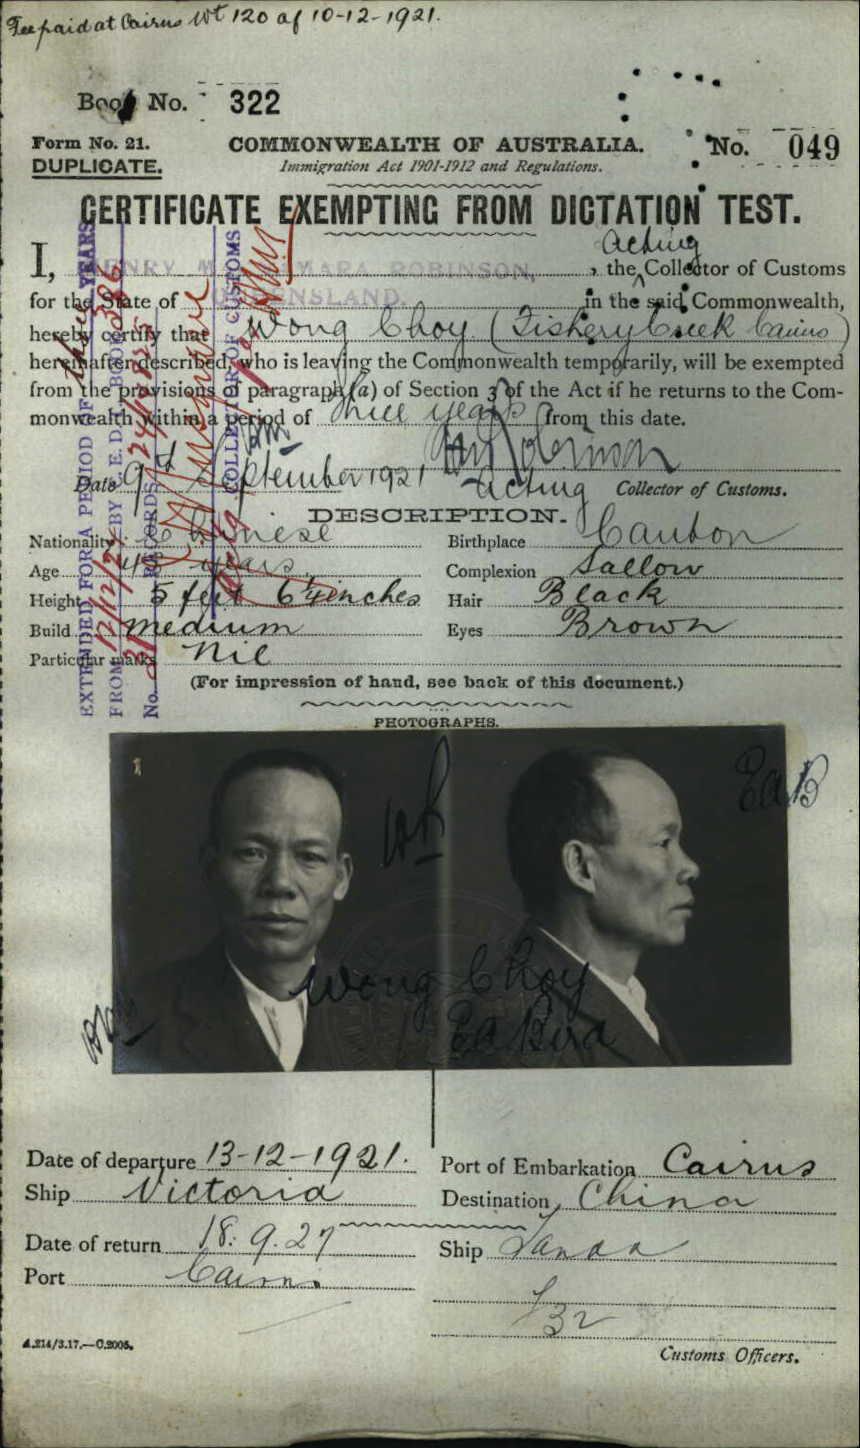 Fee paid at Cairns Wt 120 of 10-12-1921.
Book No. 322
Form No. 21.
COMMONWEALTH OF AUSTRALIA.
No. 049
DUPLICATE.
Immigration Act 1901-1912 and Regulations.
CERTIFICATE EXEMPTING FROM DICTATION TEST.
acting
I, HENRY ROBINSON, , the Collector of Customs
for the State of QUEENSLAND. in the said Commonwealth,
hereby certify that Wong Choy (Fishery Creek Cairns)
hereinafter described, who is leaving the Commonwealth temporarily, will be exempted
from the provisions of paragraph (a) of Section 3 of the Act if he returns to the Com-
monwealth within a period of three years from this date.
Date 9th September 1921
Acting Collector of Customs.
DESCRIPTION.
Nationality Chinese
Birthplace Canton
Age years
Complexion Sallow
Height 5 feet 6¼ inches
Hair Black
Build medium
Eyes Brown
Particular marks Nil
(For impression of hand, see back of this document.)
EXTENDED FOR A PERIOD OF YEARS
FROM 12/12/24 BY C.E.D.T. BOOK 386
No. 31 RECORDS 24/
COLLECTOR OF CUSTOMS
PHOTOGRAPHS.
EAB
Wong Choy
EA Bird
Date of departure 13-12-1921.
Port of Embarkation Cairns
Ship Victoria
Destination China
Date of return 18.9.27
Ship Tanda
Port Cairns
A.214/3.17.—C.2005.
Customs Officers.